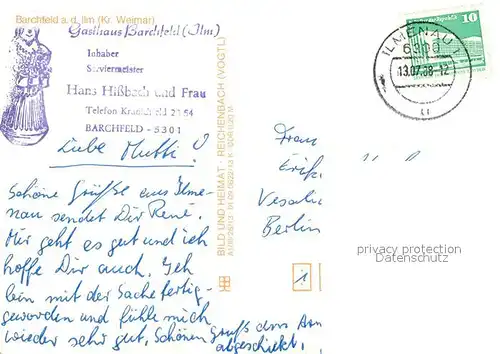 Barchfeld a. d. Ilm (Kr. Weimar)
Gasthaus Barchfeld (Ilm)
Inhaber
Serviermeister
Hans Hißbach und Frau
Telefon Kranichfeld 2354
BARCHFELD - 5301
Liebe Mutti!
Schöne Grüße aus Ilme-
nau sendet Dir René.
Mir geht es gut und ich
hoffe Dir auch. Ich
bin mit der Sache fertig-
geworden und fühle mich
wieder sehr gut. Schönen Gruß
abgeschickt.
BILD UND HEIMAT · REICHENBACH (VOGTL)
ILMENAU
6300
13.07.88-12
10
Frau
Erik
Berlin
privacy protection
Datenschutz
1